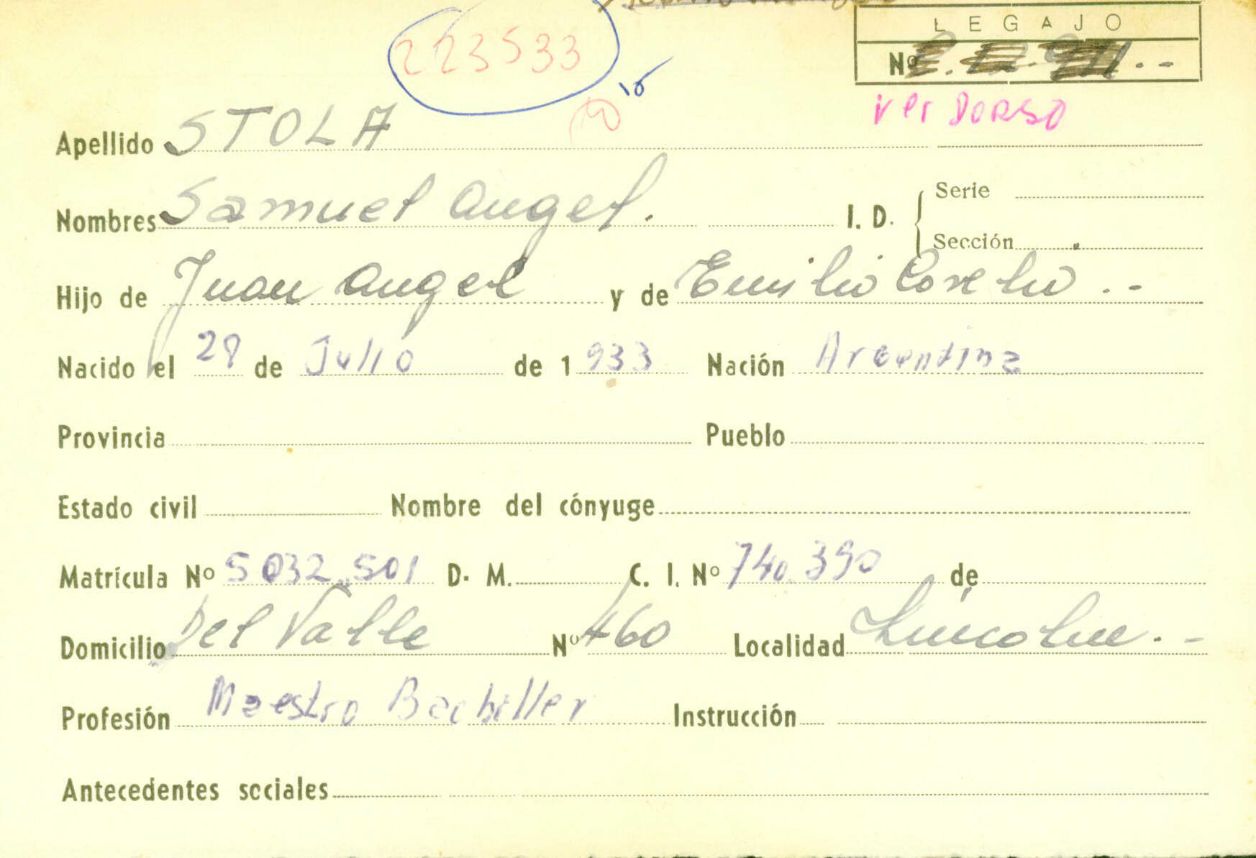 LEGAJO
223533
Nº
15
ver DORSO
Apellido STOLA
Nombres Samuel Angel. I. D. { Serie
Sección
Hijo de Juan Angel y de Emilia ..
Nacido el 28 de Julio de 1933 Nación Argentina
Provincia Pueblo
Estado civil Nombre del cónyuge
Matrícula Nº 5032.501 D. M. C. I. Nº 740.390 de
Domicilio Del Valle Nº 460 Localidad Lincoln. --
Profesión Maestro Bachiller Instrucción
Antecedentes sociales